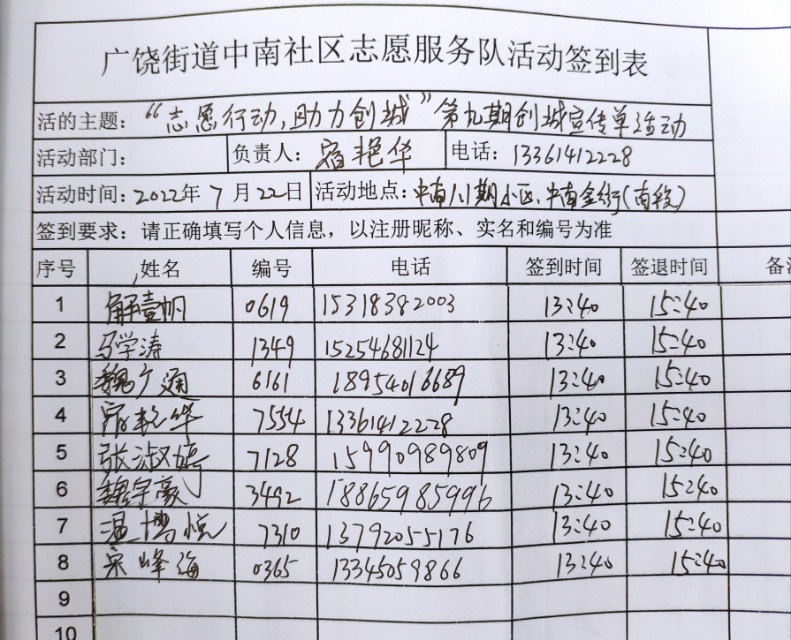 广饶街道中南社区志愿服务队活动签到表
活的主题：“志愿行动，助力创城”第九期创城宣传单活动
活动部门： 负责人：宿艳华 电话：13361412228
活动时间：2022年7月22日 活动地点：中南八1期小区、中南金街（南段）
签到要求：请正确填写个人信息，以注册昵称、实名和编号为准
序号 姓名 编号 电话 签到时间 签退时间 备
1 解壹帆 0619 15318382003 13:40 15:40
2 马学涛 1349 15254681124 13:40 15:40
3 魏广通 6161 18954016689 13:40 15:40
4 宿艳华 7554 13361412228 13:40 15:40
5 张淑婷 7128 15990989809 13:40 15:40
6 魏宇豪 3492 18865985996 13:40 15:40
7 温博悦 7310 13792055176 13:40 15:40
8 宋峰海 0365 13345059866 13:40 15:40
9
10